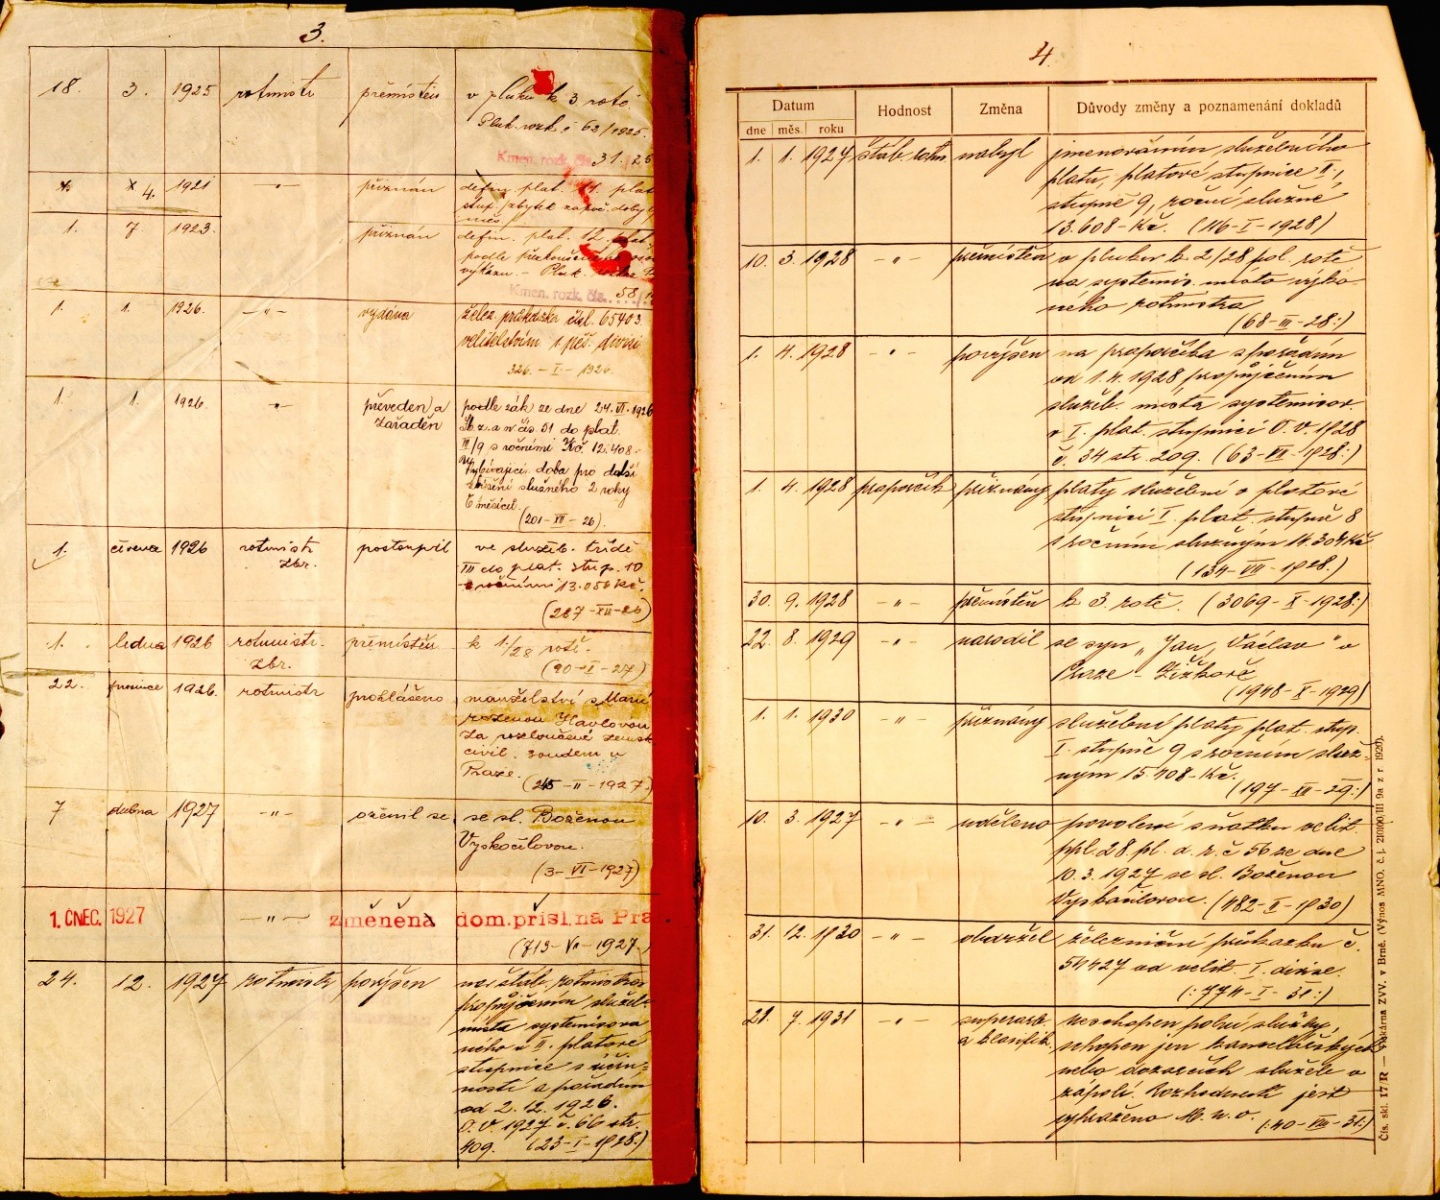 3.
18. 3. 1925 rotmistr přemístěn v pluku k 3 rotě
Pluk. rozk. č 62/1925.
Kmen. rozk. čís. 31.
4. 1921 -"- přiznán defin. plat. 11. plat
1. 7 1923. přiznán defin. plat. 12. plat.
podle
výkazu. - Pluk.
Kmen. rozk. čís. 58
1. 1. 1926. -"- vydána želez. průkazka čísl. 65403
velitelstvím 1 pěš. divisí
326. - I - 1926.
1. 1. 1926. -"- převeden a podle zák ze dne 24. VI. 1926
zařaděn Sb z. a n čís. 51 do plat.
III/9 s ročními Kč. 12.408.-
doba pro další
zvýšení služného 2 roky
6 měsíců.
(201 - XII - 26).
1. července 1926 rotmistr postoupil ve služeb. třídě
zbr. III do plat. stup. 10
s ročními 13.056 Kč.
(287 - XII - 26)
1. ledna 1926 rotmistr. přemístěn k 1./28 rotě.
zbr. (20 - I - 27)
22. prosince 1926. rotmistr prohlášeno manželství s Marií
rozenou Havlovou
za rozloučené zemsk
civil. soudem v
Praze.
(245 - II - 1927.)
7 dubna 1927 -"- oženil se se sl. Boženou
Vyskočilovou.
(3 - VI - 1927)
1. ČNEC. 1927 -"- změněna dom. přísl. na Pra
(713 - VI - 1927.)
24. 12. 1927 rotmistr povýšen na štáb. rotmistra
propůjčením služeb.
místa systemisova-
ného v II. platové
stupnice s účin-
ností a pořadím
od 2. 12. 1926.
O. V. 1927 č. 66 str.
409. (23 - I - 1928.)
4
Datum Hodnost Změna Důvody změny a poznamenání dokladů
dne měs. roku
1. 1. 1927 štáb. rotm. nabyl jmenováním služebního
platu, platové stupnice II.,
stupně 9, roční služné
13.608 - Kč. (116 - I - 1928)
10. 3. 1928 -"- přemístěn u pluku k 2/28 pol. rotě
na systemis. místo výko-
ného rotmistra
(68 - III - 28:)
1. 4. 1928 -"- povýšen na praporčíka s pořadím
od 1. 4. 1928 propůjčením
služeb. místa systemisov.
v I. plat. stupnici O. V. 1928
č. 34 str. 209. (63 - VII - 1928:)
1. 4. 1928 praporčík přiznány platy služební v platové
stupnici I. plat. stupně 8
s ročním služným 14.304 Kč
(134 - VII - 1928.)
30. 9. 1928 -"- přemístěn k 3. rotě. (3069 - X - 1928:)
22. 8. 1929 -"- narodil se syn „Jan, Václav" v
Praze - Žižkově
(1948 - X - 1929)
1. 1. 1930 -"- přiznány služební platy plat. stup.
I. stupně 9 s ročním služ-
ným 15.408 - Kč.
(197 - XII - 29:)
10. 3. 1927 -"- uděleno povolení sňatku velit.
ppl. 28. pl. d. r. č 56 ze dne
10. 3. 1927 se sl. Boženou
Vyskočilovou. (482 - V - 1930)
31. 12. 1930 -"- obdržel železniční průkazku č.
54427 od velit. I. divise.
(: 774 - I - 31:)
21. 7. 1931 -"- superarb. neschopen polní služby,
a klasifik. schopen jen kancelářských
nebo dozorčích služeb v
zápolí. Rozhodnutí jest
vyhraženo M. n. o. (:40 - VIII - 31:)
Čís. skl. 17/R — Tiskárna ZVV. v Brně. (Výnos MNO. č. j. 210100/III 9a z r 1920).